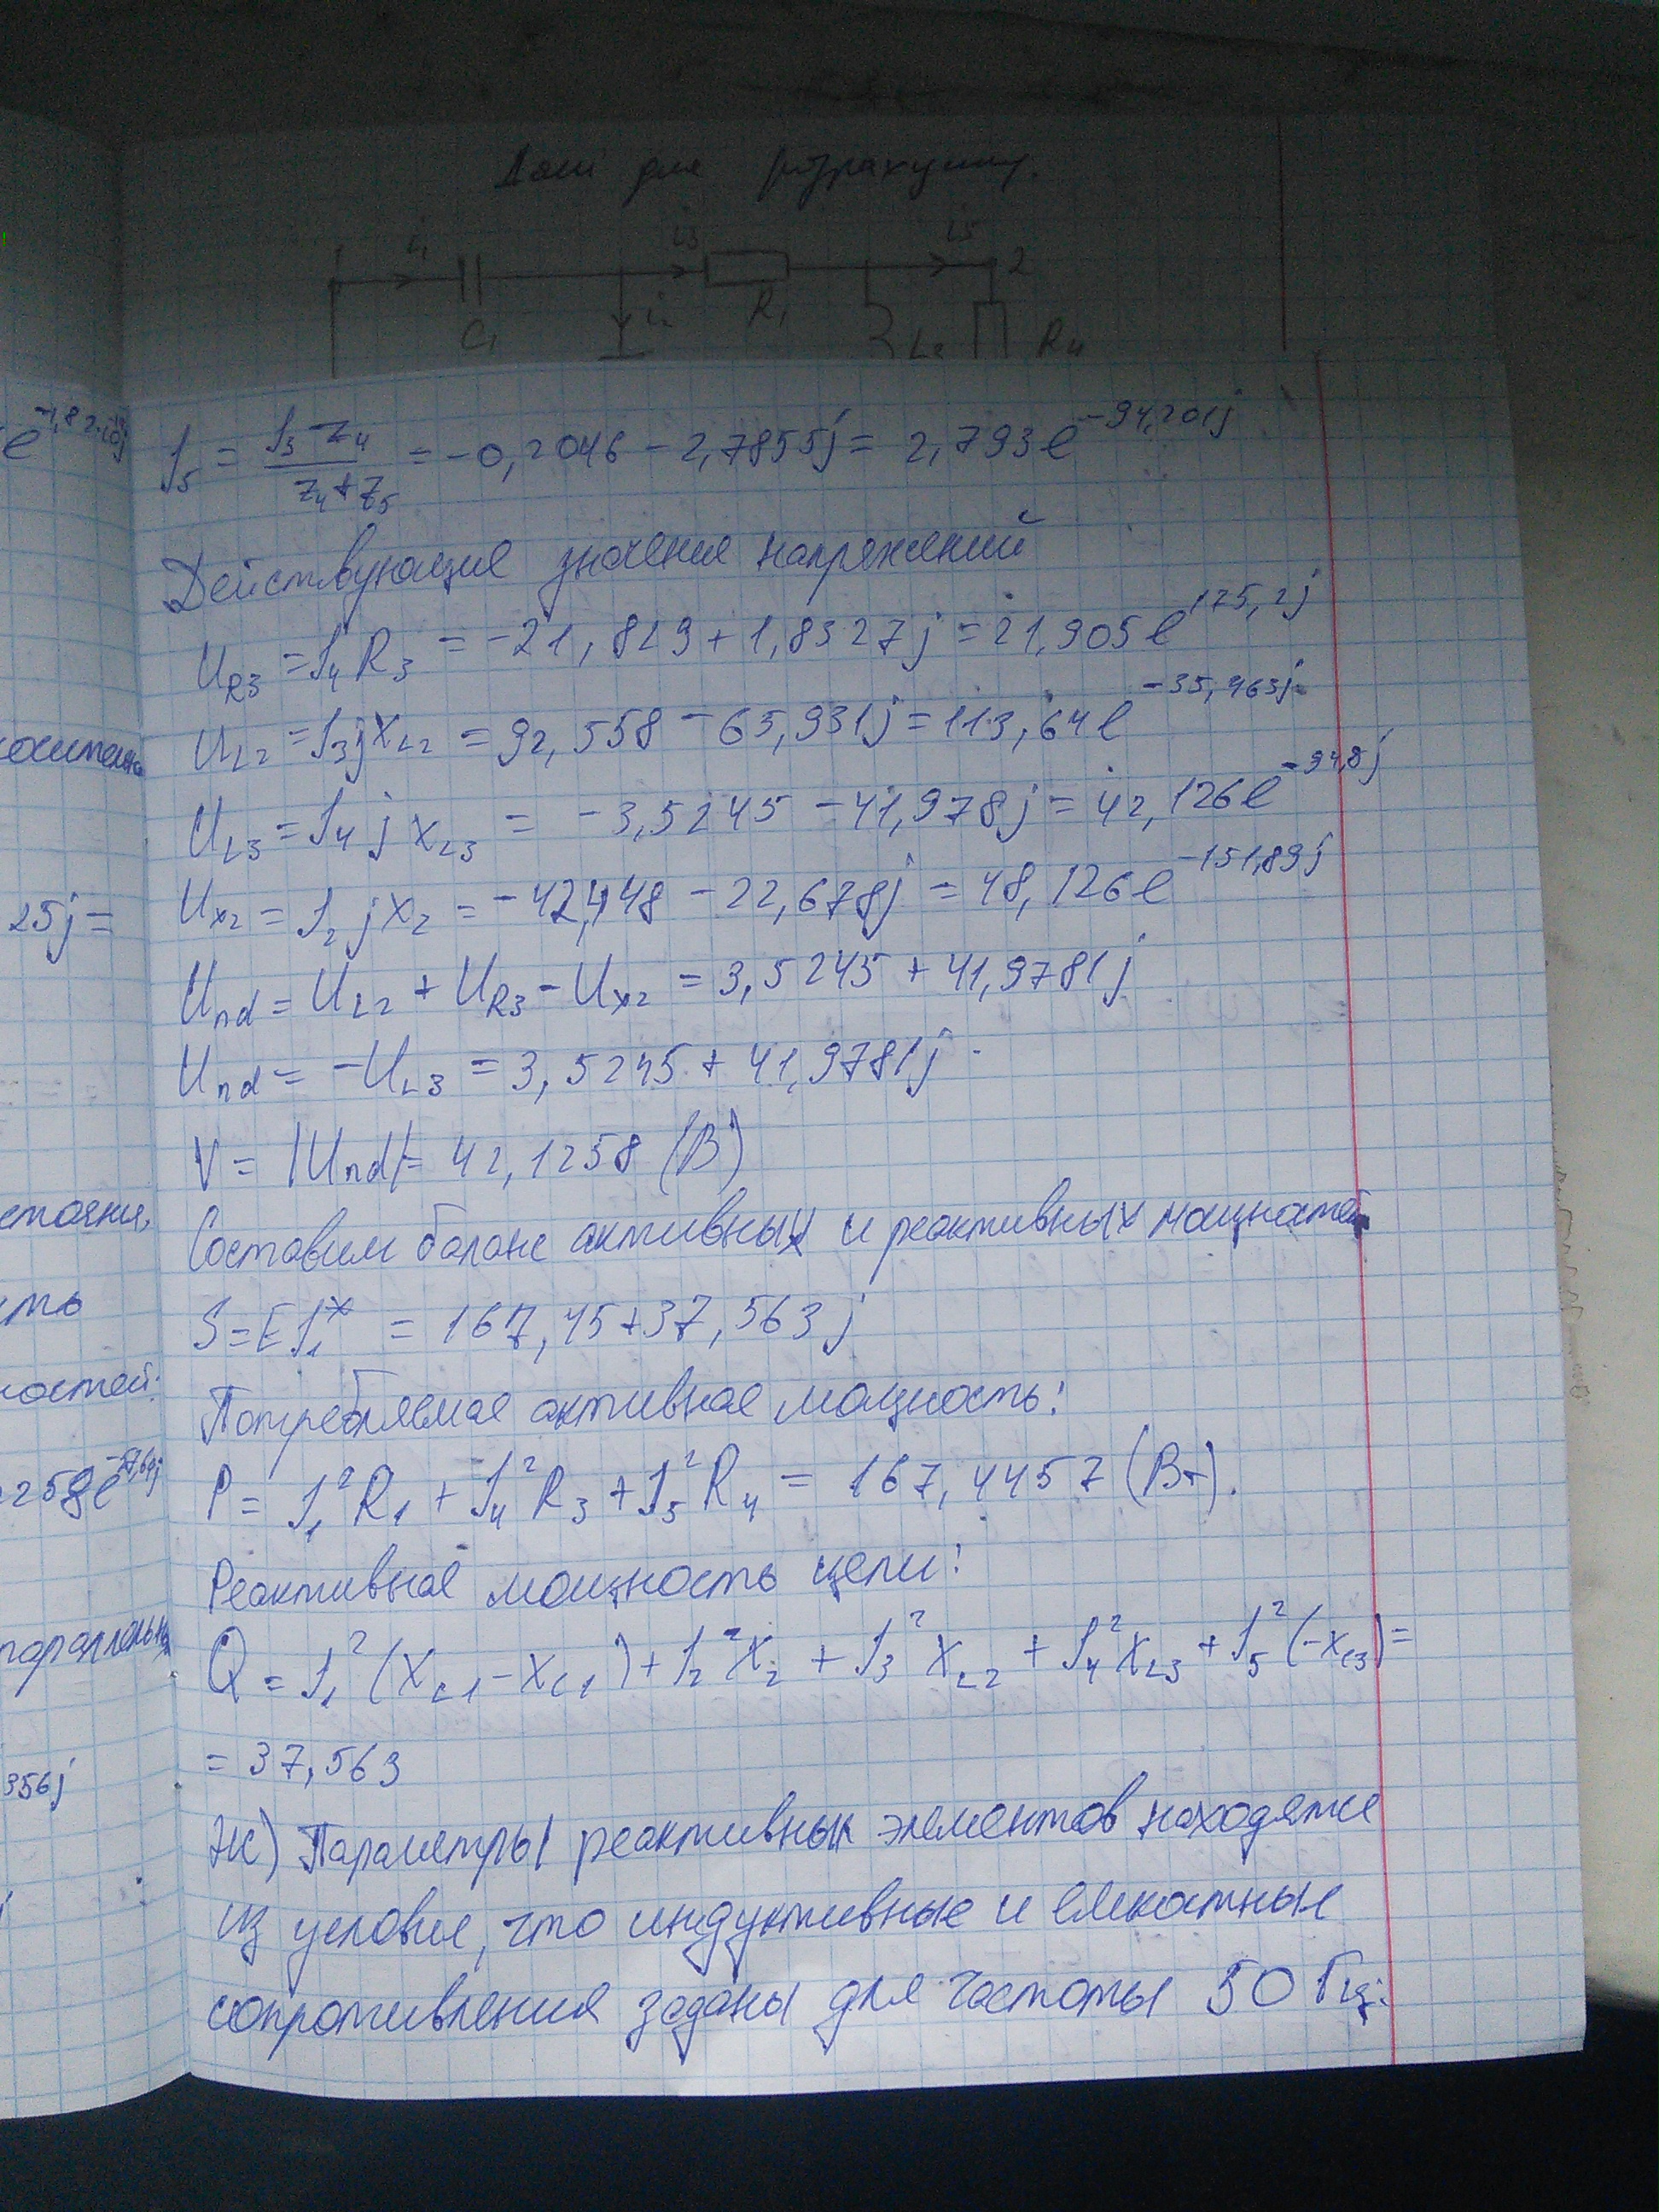 Дані для розрахунку.
i1 i3 i5 2
C1 i2 R1 L2 R4
e^-1,82·10j
I5 = I3 Z4 / Z4+Z5 = -0,2046 - 2,7855j = 2,793e^-94,201j
Действующие значения напряжений
U_R3 = I4 R3 = -21,829 + 1,8327j = 21,905e^175,2j
U_L2 = I3 jX_L2 = 92,558 - 65,931j = 113,64e^-35,463j
U_L3 = I4 j X_L3 = -3,5245 - 41,978j = 42,126e^-94,8j
25j =
U_x2 = I2 jX2 = -42,448 - 22,678j = 48,126e^-151,89j
U_nd = U_L2 + U_R3 - U_x2 = 3,5245 + 41,9781j
U_nd = -U_L3 = 3,5245 + 41,9781j
V = |U_nd| = 42,1258 (В)
Составим баланс активных и реактивных мощностей
S = E I1^* = 167,45 + 37,563j
ностей:
Потребляемая активная мощность:
P = I1^2 R1 + I4^2 R3 + I5^2 R4 = 167,4457 (Вт).
Реактивная мощность цепи:
Q = I1^2 (X_L1 - X_C1) + I2^2 X2 + I3^2 X_L2 + I4^2 X_L3 + I5^2 (-X_C3) =
= 37,563
356j
Ж) Параметры реактивных элементов находятся
из условия, что индуктивные и емкостные
сопротивления заданы для частоты 50 Гц: